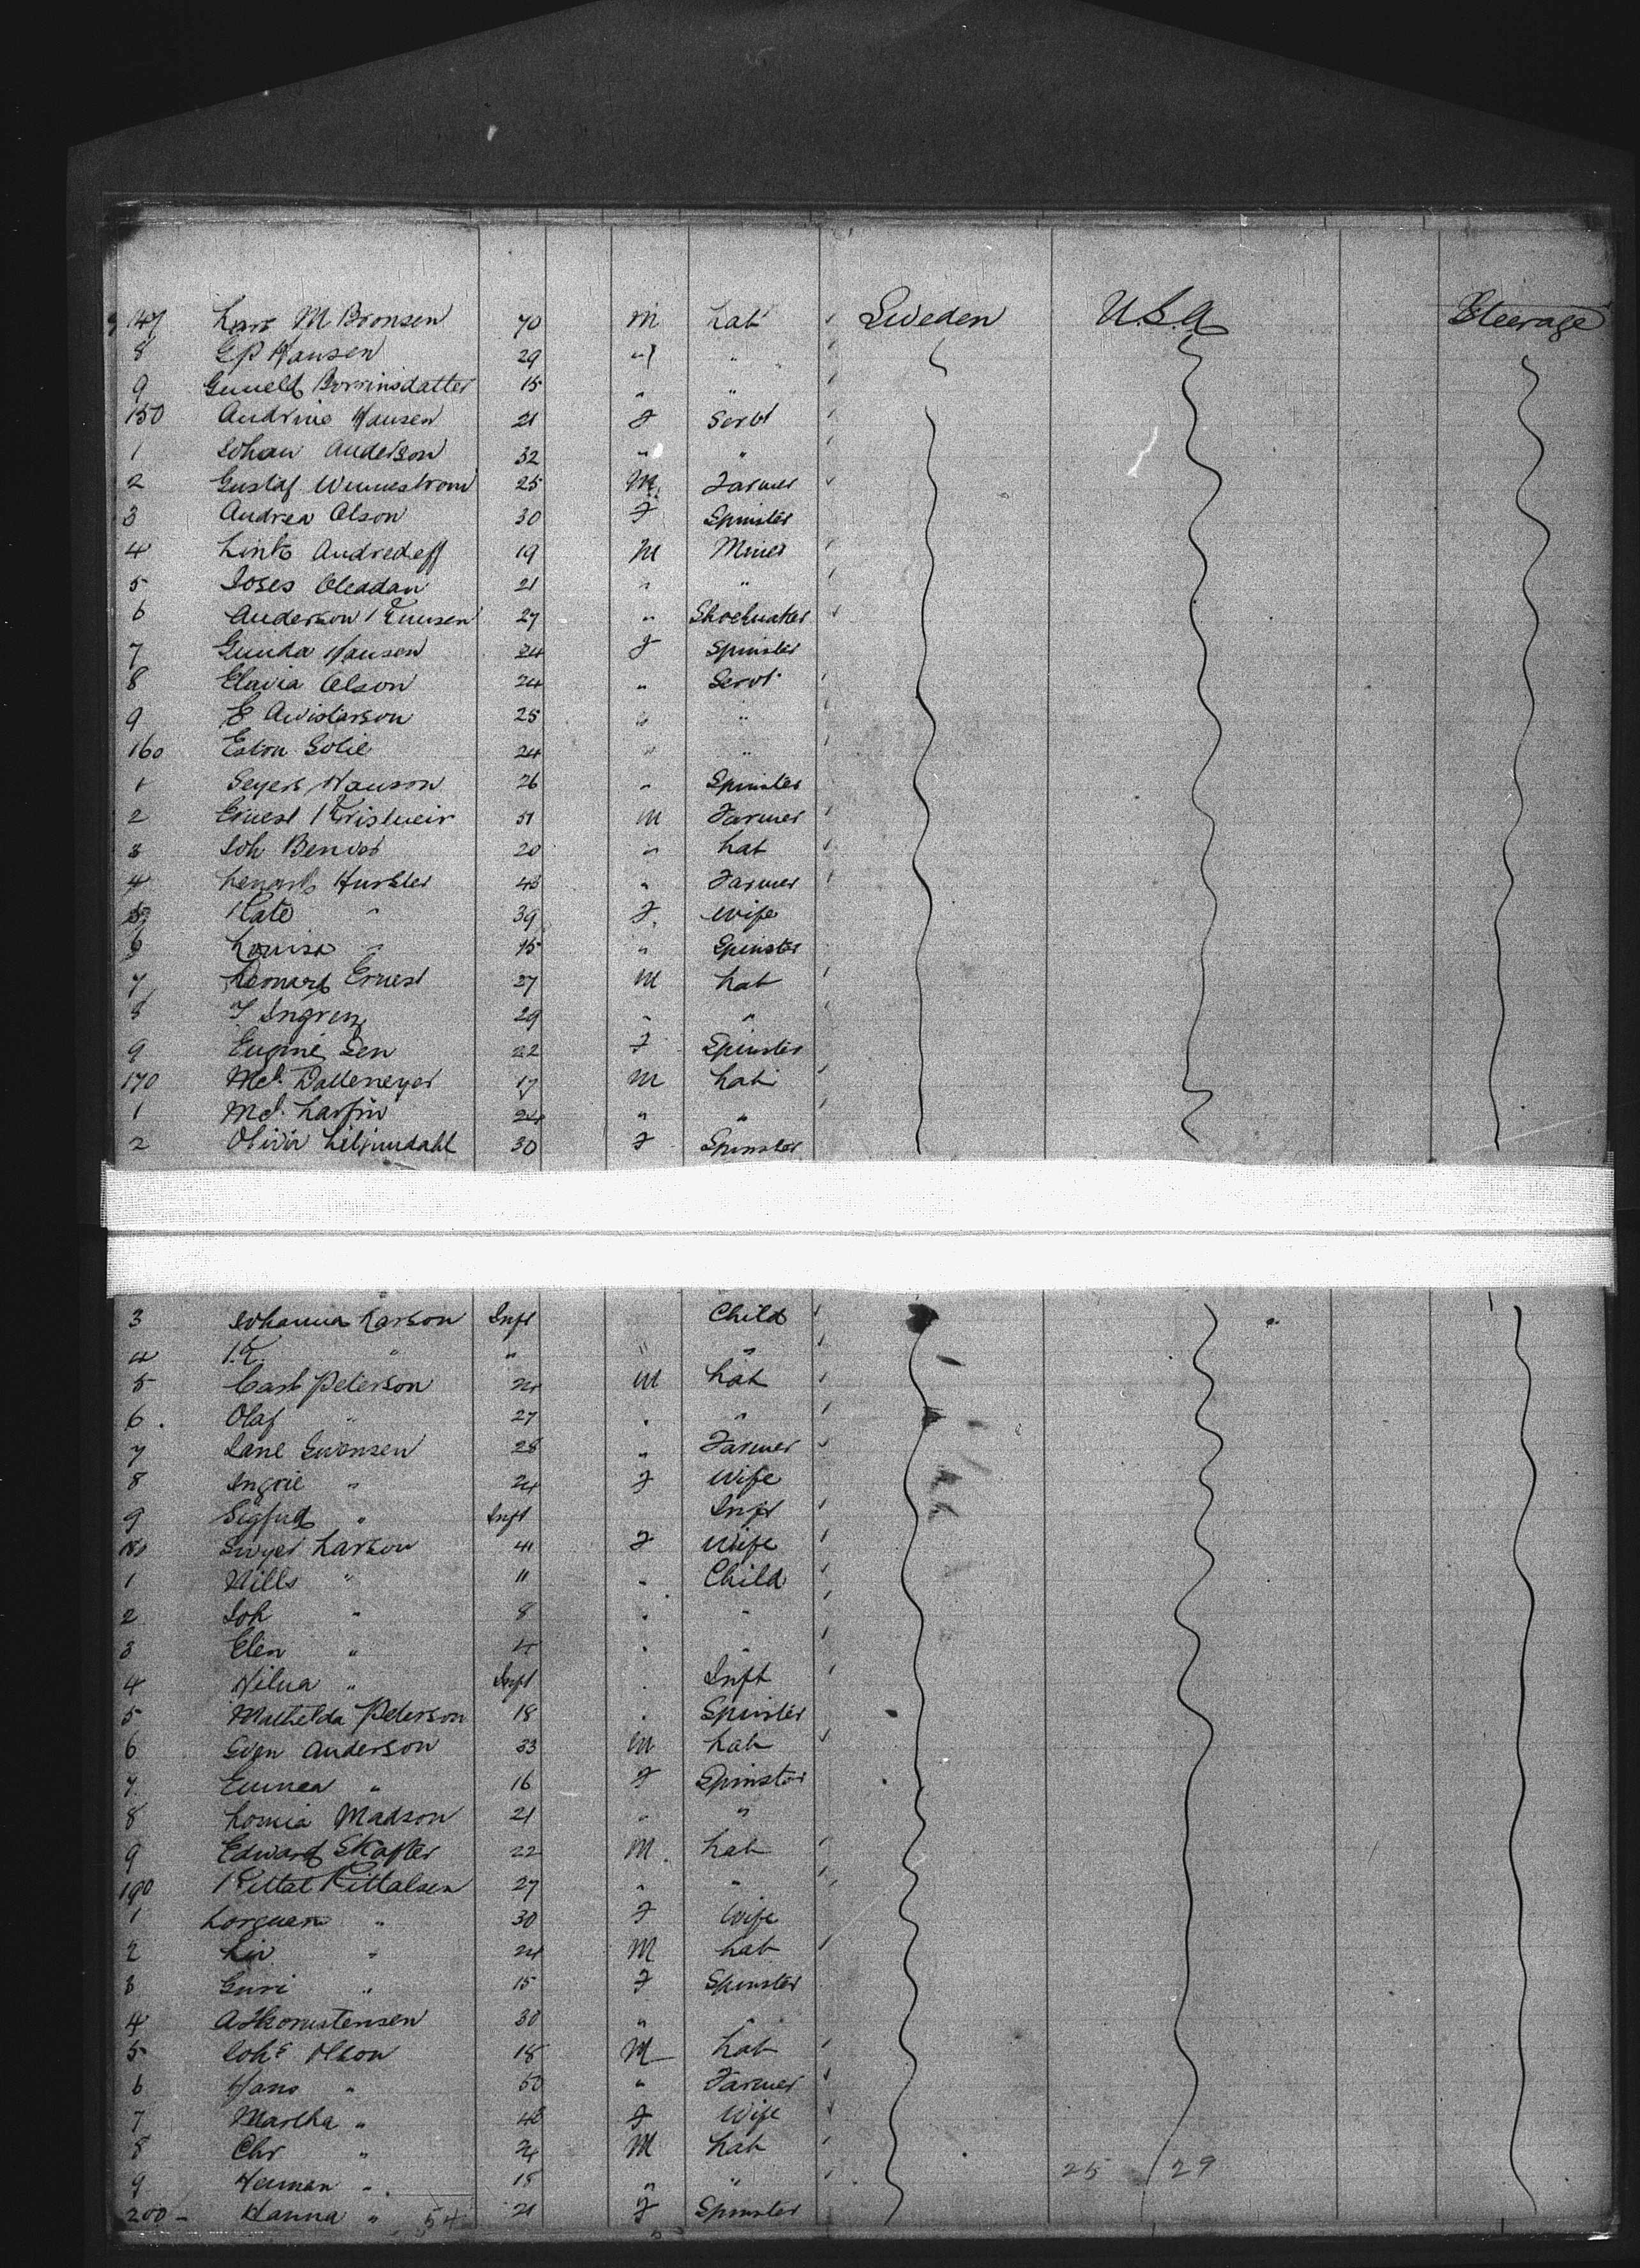 147 Lars M Bronsen 70 M Lab Sweden U.S.A Steerage
8 G P Hansen 29 " "
9 Borrinsdatter 15 " "
150 Andrine Hansen 21 F Servt
1 Johan Anderson 32 " "
2 Gustaf Wennestrom 25 M Farmer
3 Andrea Olson 30 F Spinster
4 19 M Miner
5 21 " "
6 Anderson Knusen 27 " Shoemaker
7 Gunda Hansen 24 F Spinster
8 Elavia Olson 24 " Servt
9 E 25 " "
160 Eston Solie 24 " "
1 Hanson 26 " Spinster
2 Ernest M Farmer
3 Joh 20 " Lab
4 43 " Farmer
5 Kate " 39 F. Wife
6 Louisa " 15 " Spinster
7 Leonard Ernest 37 M Lab
8 29 " "
9 Eugine Sen 22 F Spinster
170 17 M Lab
1 24 " "
2 Olivia Liljundahl 30 F Spinster
3 Johanna Larson Inft Child
4 K. " " " "
5 Carl Peterson 24 M Lab
6. Olaf " 27 " "
7 Lane Swensen 28 " Farmer
8 Ingrie " 24 F Wife
9 Sigfud " Inft Inft
180 Larson 41 F Wife
1 Nills " 11 " Child
2 Joh " 8 " "
3 Elen " 4 " "
4 " Inft Inft
5 Mathelda Peterson 18 " Spinster
6 Sven Anderson 33 M Lab
7 Emmea " 16 F Spinster
8 Madson 21 " "
9 Edward Skafter 22 M. Lab
190 Kittal Kittalsen 27 " "
1 " 30 F Wife
2 Liv " 24 M Lab
3 Guri " 15 F Spinster
4 30 " "
5 Joh Olson 18 M Lab
6 Hans " 50 " Farmer
7 Martha " 48 F Wife
8 Chr " 24 M Lab
9 Herman " 18 " " 25 29
200 - Hanna " 54 21 F Spinster